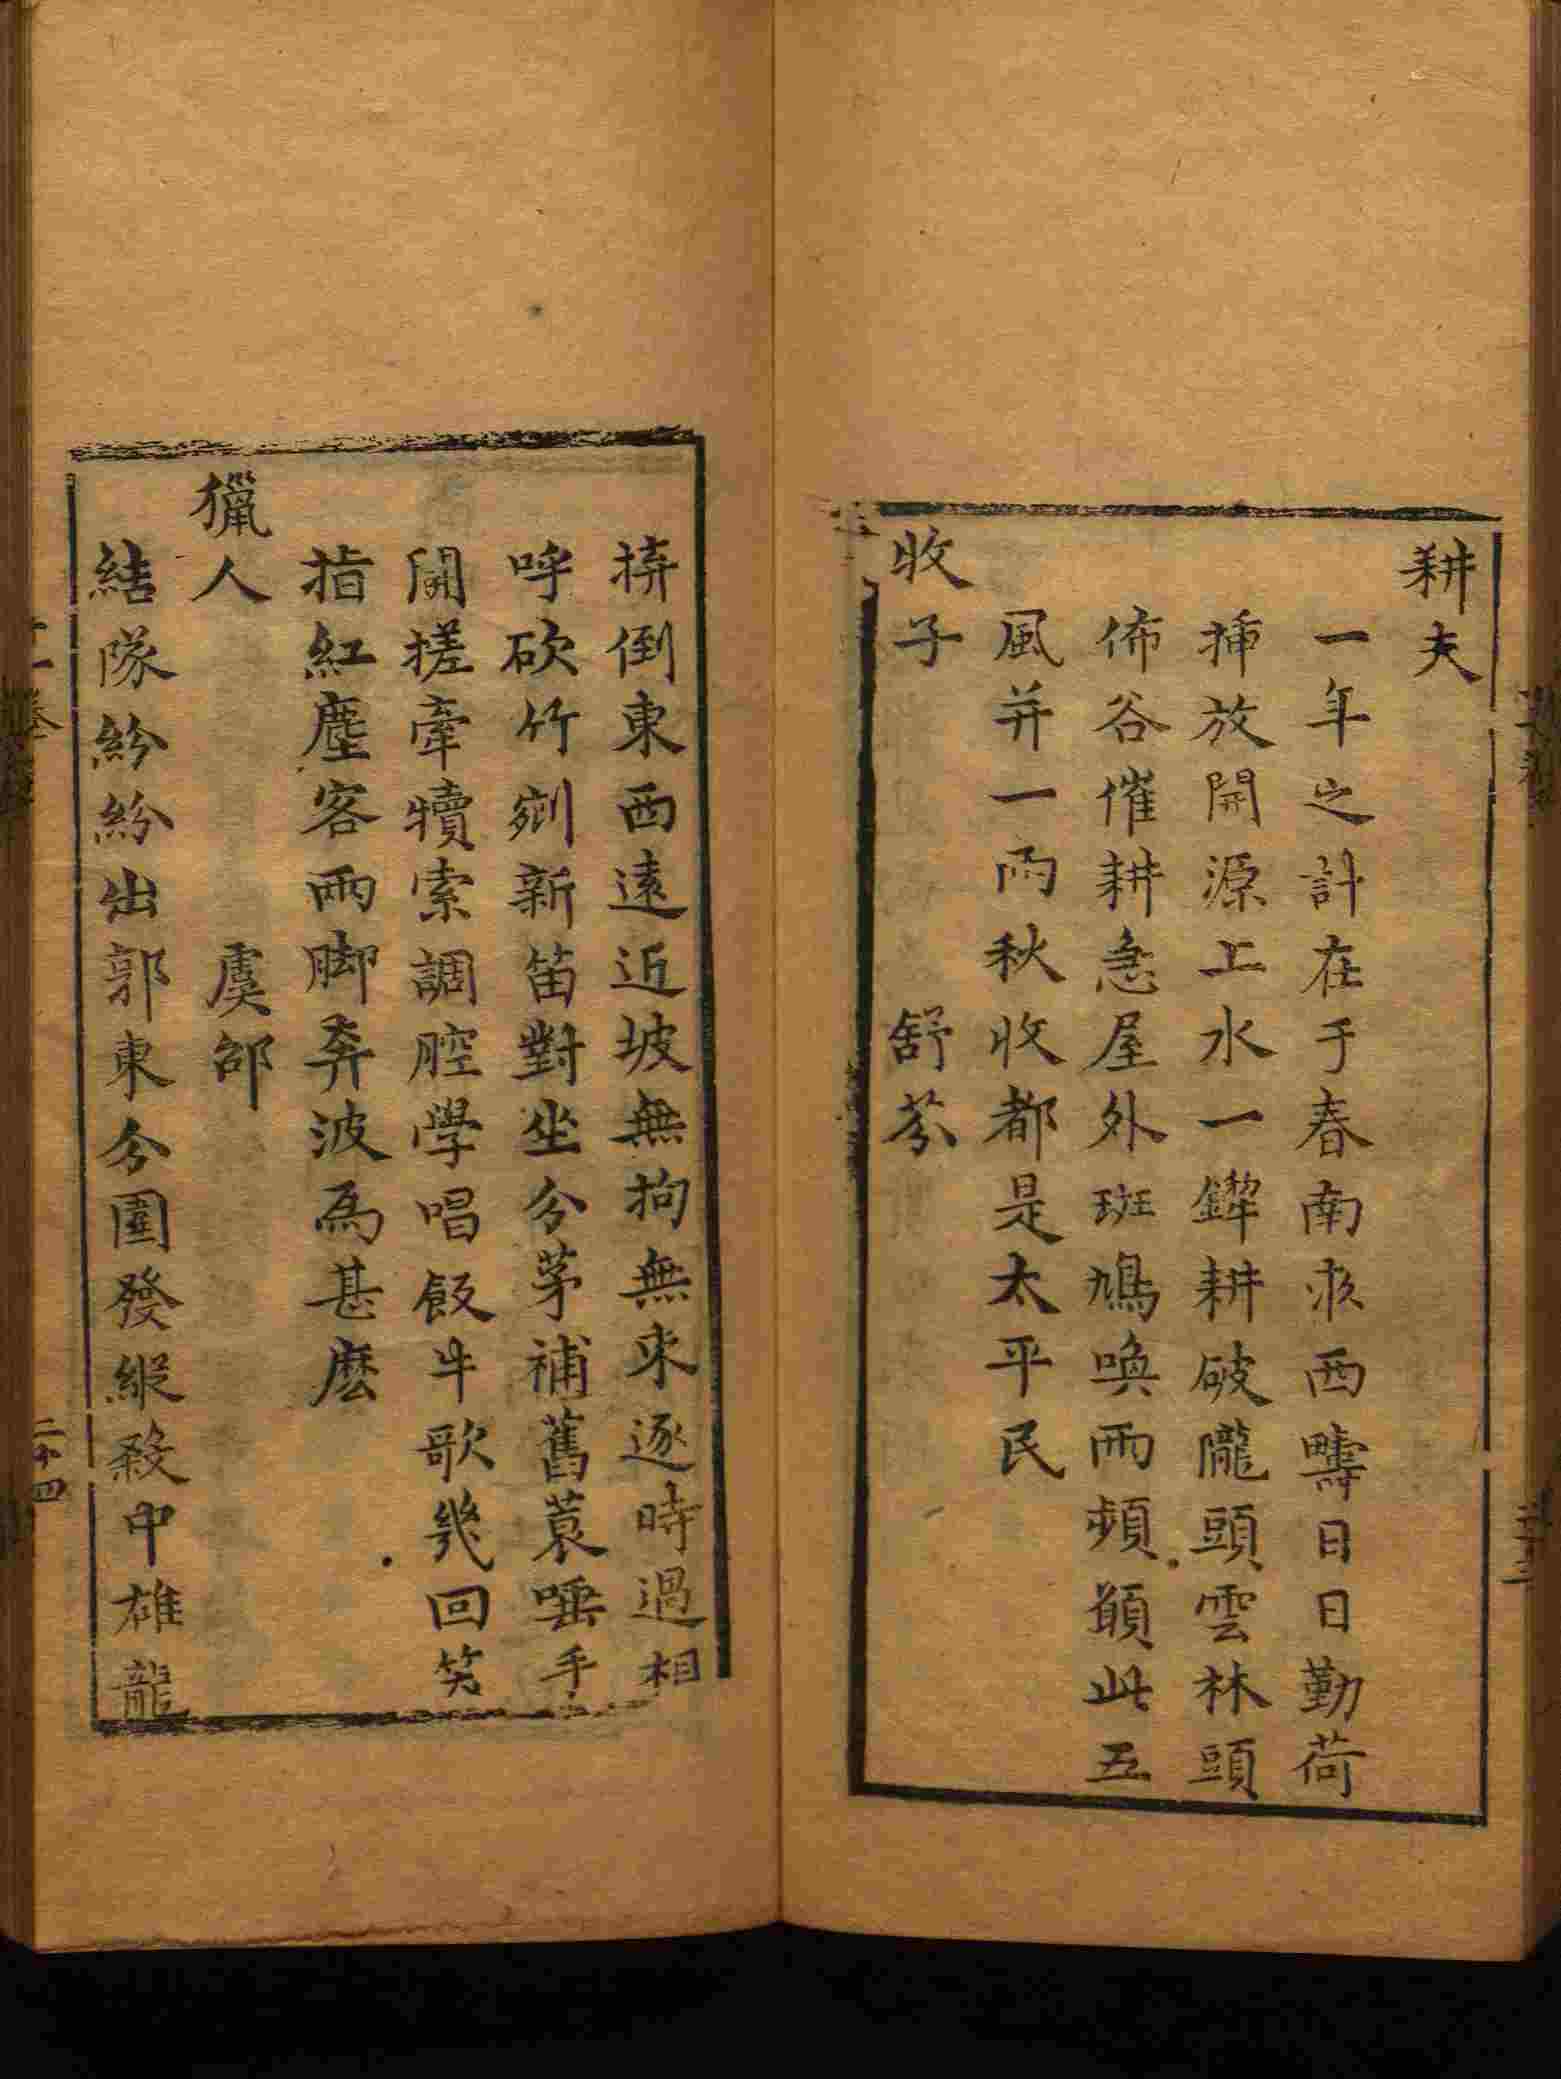 耕夫
一年之計在于春南畝西疇日日勤荷
挿放開源上水一鏵耕破隴頭雲林頭
佈谷催耕急屋外斑鳩喚雨頻願此五
風并一雨秋收都是太平民
收子 舒芬
㧸倒東西遠近坡無拘無束逐時過相
呼砍竹剜新笛對坐分茅補舊蓑唾手
閑搓牽犢索調腔學唱飯牛歌幾回笑
指紅塵客兩脚奔波爲甚麽
獵人 虞部
結隊紛紛出郭東分圍發縱殺中雄龍
十一卷
二十四